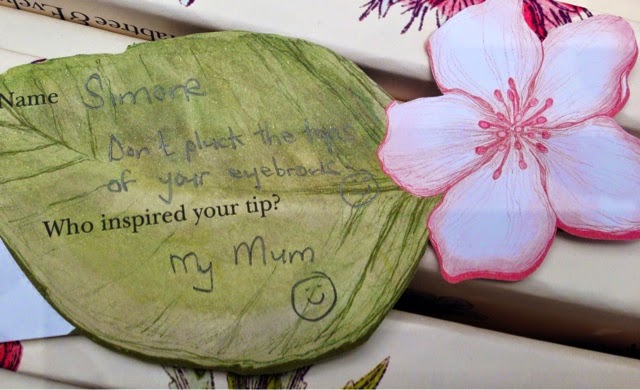 abtree & Evely
Name Simone
Don't pluck the tops
of your eyebrows
Who inspired your tip?
My Mum